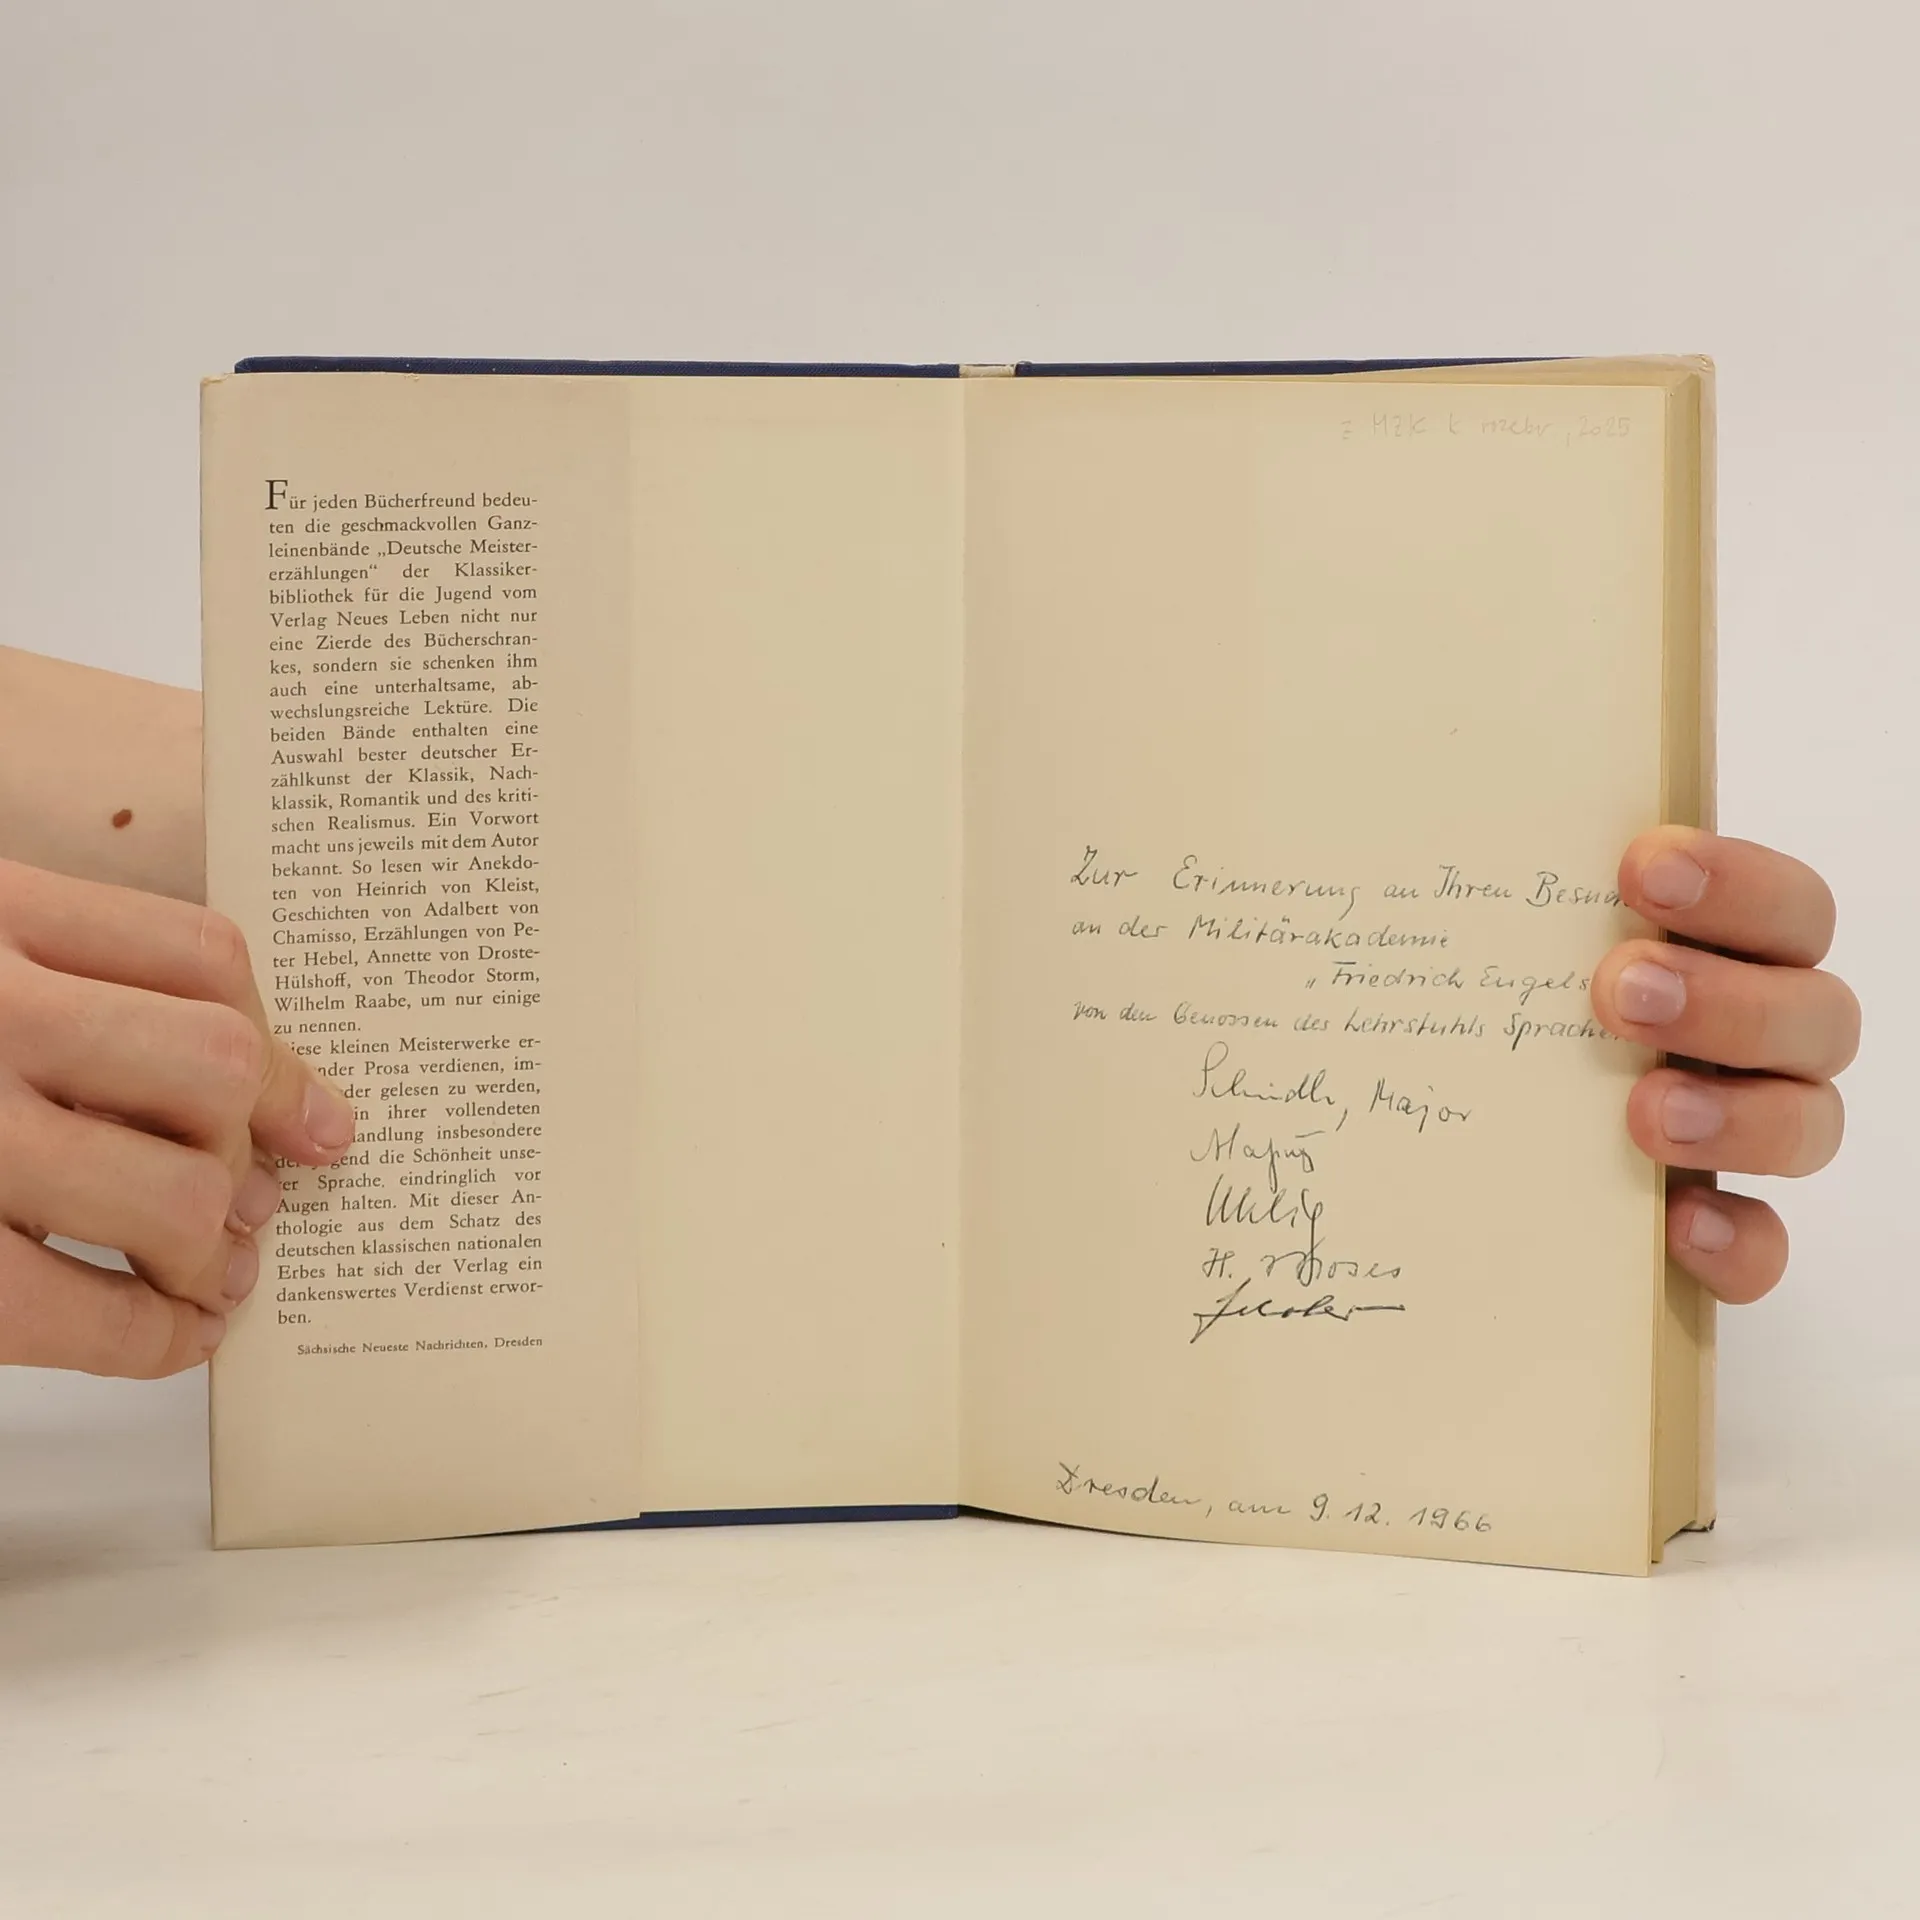 Für jeden Bücherfreund bedeu-
ten die geschmackvollen Ganz-
leinenbände „Deutsche Meister-
erzählungen“ der Klassiker-
bibliothek für die Jugend vom
Verlag Neues Leben nicht nur
eine Zierde des Bücherschran-
kes, sondern sie schenken ihm
auch eine unterhaltsame, ab-
wechslungsreiche Lektüre. Die
beiden Bände enthalten eine
Auswahl bester deutscher Er-
zählkunst der Klassik, Nach-
klassik, Romantik und des kriti-
schen Realismus. Ein Vorwort
macht uns jeweils mit dem Autor
bekannt. So lesen wir Anekdo-
ten von Heinrich von Kleist,
Geschichten von Adalbert von
Chamisso, Erzählungen von Pe-
ter Hebel, Annette von Droste-
Hülshoff, von Theodor Storm,
Wilhelm Raabe, um nur einige
zu nennen.
iese kleinen Meisterwerke er-
nder Prosa verdienen, im-
der gelesen zu werden,
in ihrer vollendeten
andlung insbesondere
gend die Schönheit unse-
er Sprache, eindringlich vor
Augen halten. Mit dieser An-
thologie aus dem Schatz des
deutschen klassischen nationalen
Erbes hat sich der Verlag ein
dankenswertes Verdienst erwor-
ben.
Sächsische Neueste Nachrichten, Dresden
z MZK k rozebr, 2025
Zur Erinnerung an Ihren Besuch
an der Militärakademie
„Friedrich Engels
von den Genossen des Lehrstuhls Sprachen
Schindler, Major
Uhlig
H. Moses
Dresden, am 9. 12. 1966